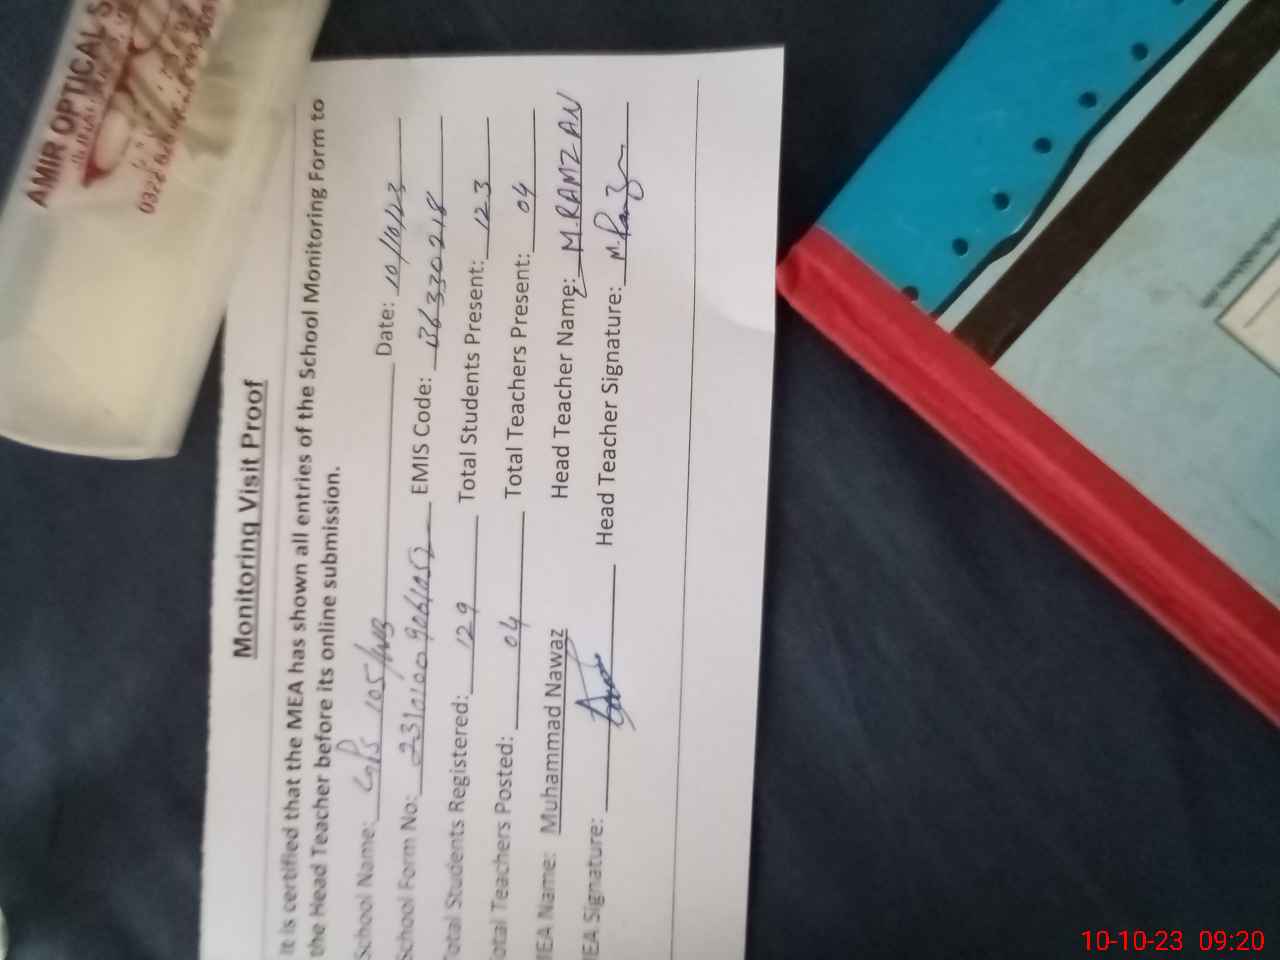 AMIR OPTICAL S
Monitoring Visit Proof
It is certified that the MEA has shown all entries of the School Monitoring Form to
the Head Teacher before its online submission.
School Name: GPS 105/WB Date: 10/10/23
School Form No: EMIS Code: 36330218
otal Students Registered: 129 Total Students Present: 123
otal Teachers Posted: 04 Total Teachers Present: 04
IEA Name: Muhammad Nawaz Head Teacher Name: M.RAMZAN
IEA Signature: Head Teacher Signature:
10-10-23 09:20